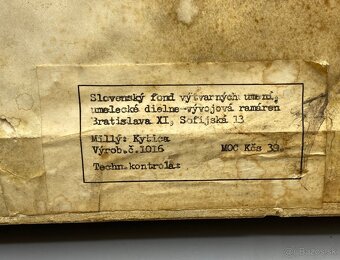 Slovenský fond výtvarných umení,
umelecké dielne-vývojová ramáren
Bratislava XI, Sofijská 13
Millý: Kytica
Výrob.č.1016 MOC Kčs 39.
Techn.kontrola: